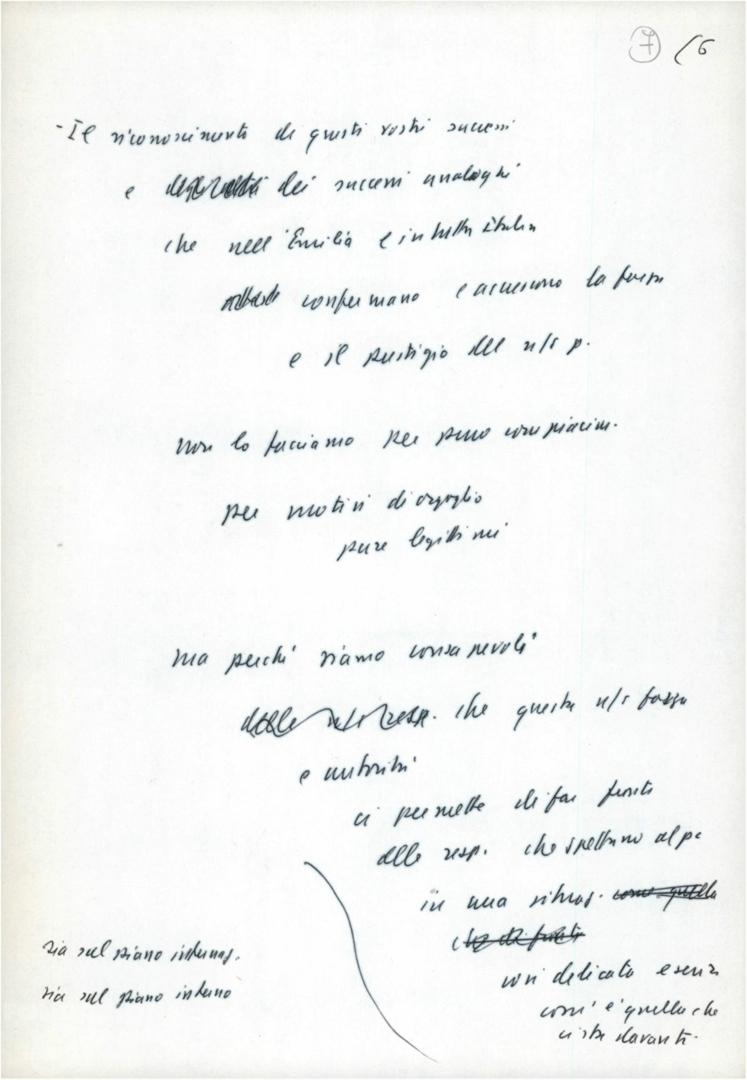 7 /6
- Il riconoscimento di questi vostri successi
e dei successi analoghi
che nell'Emilia e in tutta Italia
confermano e accrescono la forza
e il prestigio del n/s p.
Non lo facciamo per puro compiacim.
per motivi di orgoglio
pure legittimi
ma perché siamo consapevoli
delle n/s resp. che questa n/s forza
e autorità
ci permette di far fronte
alle resp. che spettano al pc
in una situaz. come quella
che di fronte
così delicata e
com'è quella che
ci sta davanti.
sia sul piano internaz.
sia sul piano interno